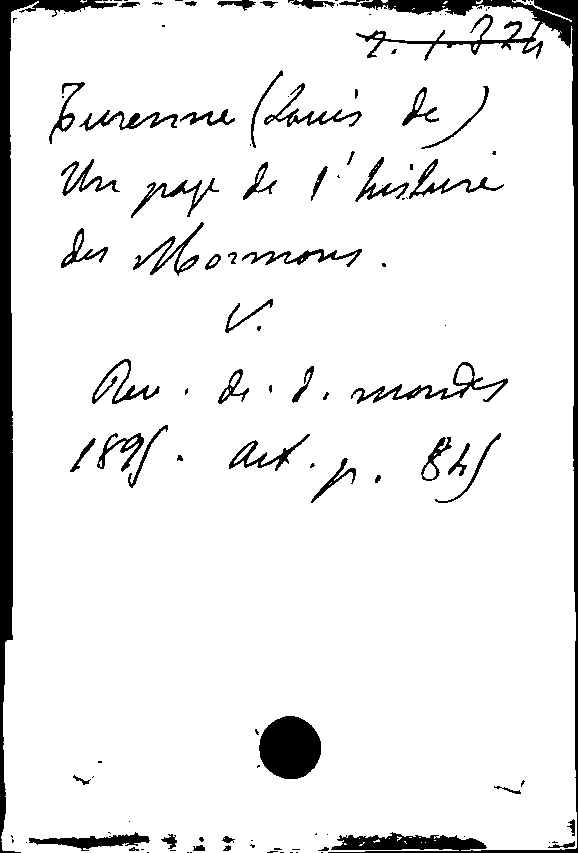 2. 1. 324
Turenne (Louis de)
Un page de l'histoire
des Mormons.
V.
Rev. de. d. mondes
1895. Oct. p. 845